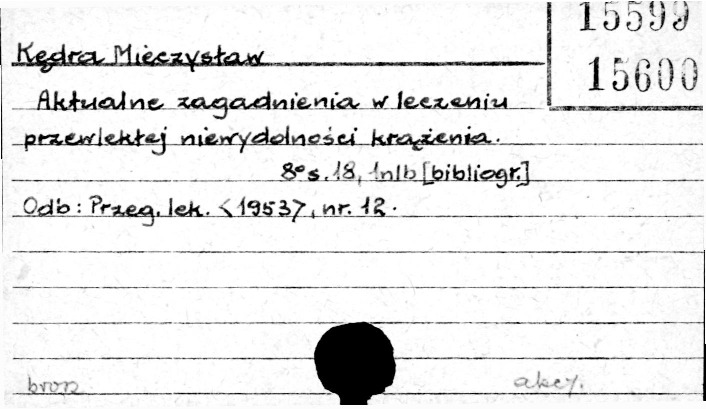 15599
15600
Kędra Mieczysław
Aktualne zagadnienia w leczeniu
przewlekłej niewydolności krążenia.
8° s. 18, 1nlb [bibliogr.]
Odb: Przeg. lek. <1953>, nr. 12.
brosz.
akcy.